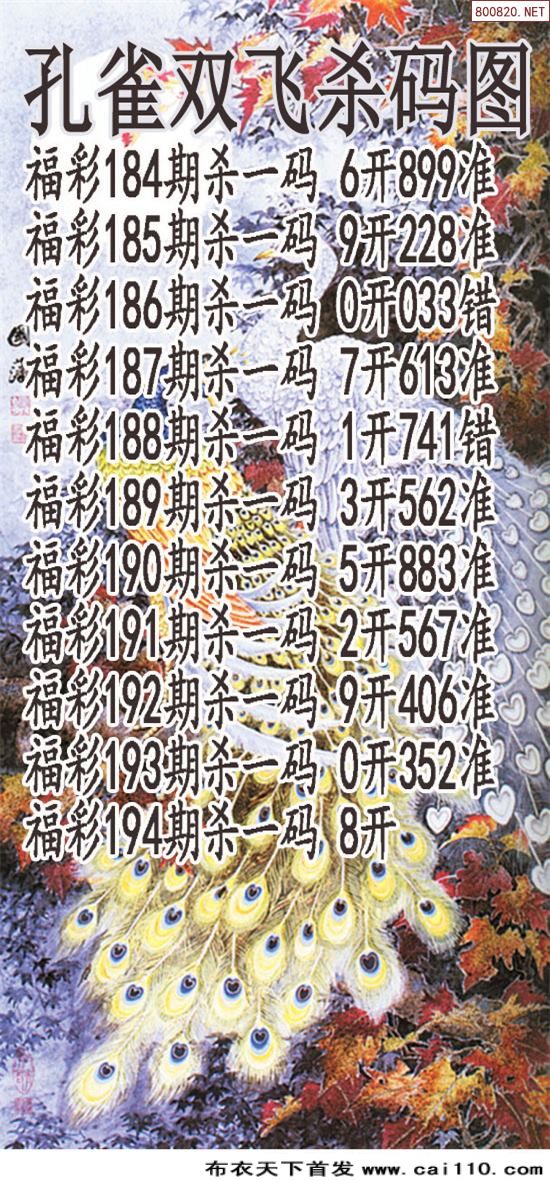 800820.NET
孔雀双飞杀码图
福彩184期杀一码 6开899准
福彩185期杀一码 9开228准
福彩186期杀一码 0开033错
福彩187期杀一码 7开613准
福彩188期杀一码 1开741错
福彩189期杀一码 3开562准
福彩190期杀一码 5开883准
福彩191期杀一码 2开567准
福彩192期杀一码 9开406准
福彩193期杀一码 0开352准
福彩194期杀一码 8开
布衣天下首发 www.cai110.com